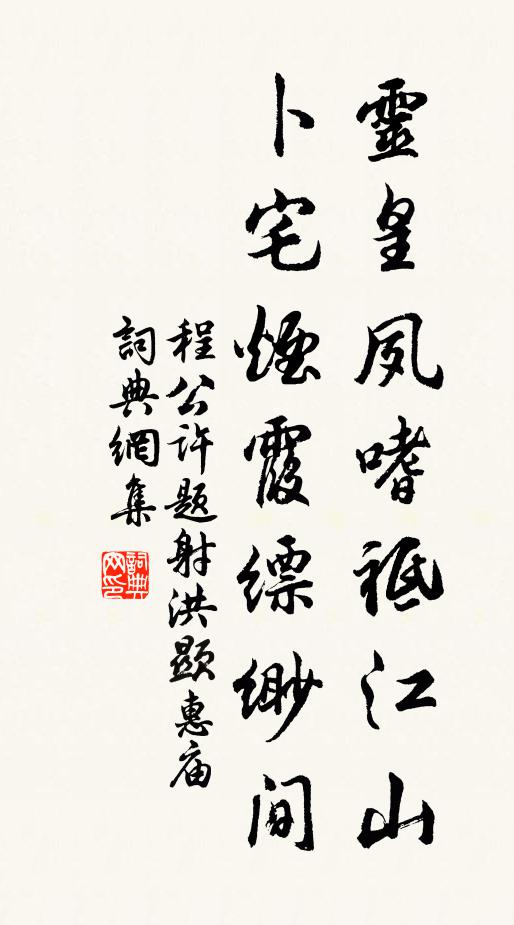 靈皇夙嗜祗江山
卜宅煙霞縹緲間
程公許題射洪顯惠庙
詞典網集
詞典网印